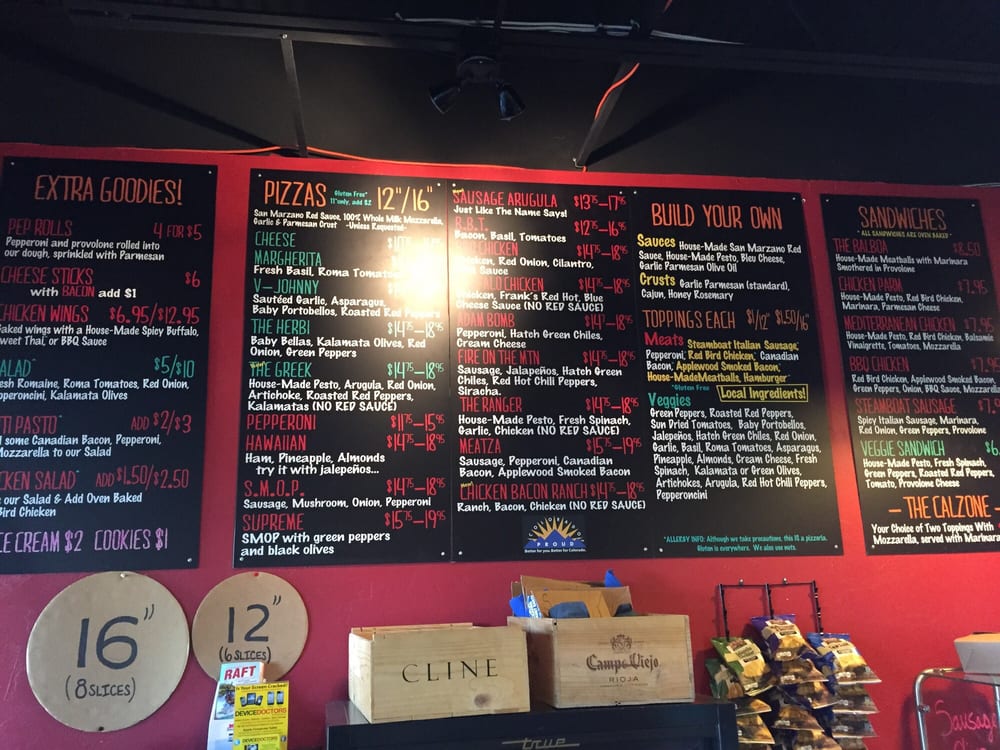 EXTRA GOODIES!
PEP ROLLS 4 FOR $5
Pepperoni and provolone rolled into
our dough, sprinkled with Parmesan
CHEESE STICKS $6
with BACON add $1
CHICKEN WINGS $6.95/$12.95
Baked wings with a House-Made Spicy Buffalo,
Sweet Thai, or BBQ Sauce
$5/$10
Romaine, Roma Tomatoes, Red Onion,
Pepperoncini, Kalamata Olives
PASTO ADD $2/$3
some Canadian Bacon, Pepperoni,
Mozzarella to our Salad
SALAD ADD $1.50/$2.50
our Salad & Add Oven Baked
Bird Chicken
ICE CREAM $2 COOKIES $1
PIZZAS Gluten Free* 11" only, add $2 12"/16"
San Marzano Red Sauce, 100% Whole Milk Mozzarella,
Garlic & Parmesan Crust -Unless Requested-
CHEESE
MARGHERITA
Fresh Basil, Roma Tomatoes
V-JOHNNY
Sautéed Garlic, Asparagus,
Baby Portobellos, Roasted Red Peppers
THE HERBI $14.75-18.95
Baby Bellas, Kalamata Olives, Red
Onion, Green Peppers
THE GREEK $14.75-18.95
House-Made Pesto, Arugula, Red Onion,
Artichoke, Roasted Red Peppers,
Kalamatas (NO RED SAUCE)
PEPPERONI $11.75-15.95
HAWAIIAN $14.75-18.95
Ham, Pineapple, Almonds
try it with jalepeños...
S.M.O.P. $14.75-18.95
Sausage, Mushroom, Onion, Pepperoni
SUPREME $15.75-19.95
SMOP with green peppers
and black olives
SAUSAGE ARUGULA $13.75-17.95
Just Like The Name Says!
B.B.T. $12.75-16.95
Bacon, Basil, Tomatoes
CHICKEN $14.75-18.95
Chicken, Red Onion, Cilantro,
Sauce
BUFFALO CHICKEN $14.75-18.95
Chicken, Frank's Red Hot, Blue
Cheese Sauce (NO RED SAUCE)
ADAM BOMB $14.75-18.95
Pepperoni, Hatch Green Chiles,
Cream Cheese
FIRE ON THE MTN $14.75-18.95
Sausage, Jalapeños, Hatch Green
Chiles, Red Hot Chili Peppers,
Siracha.
THE RANGER $14.75-18.95
House-Made Pesto, Fresh Spinach,
Garlic, Chicken (NO RED SAUCE)
MEATZA $15.75-19.95
Sausage, Pepperoni, Canadian
Bacon, Applewood Smoked Bacon
CHICKEN BACON RANCH $14.75-18.95
Ranch, Bacon, Chicken (NO RED SAUCE)
COLORADO
PROUD
Better for you. Better for Colorado.
BUILD YOUR OWN
Sauces House-Made San Marzano Red
Sauce, House-Made Pesto, Bleu Cheese,
Garlic Parmesan Olive Oil
Crusts Garlic Parmesan (standard),
Cajun, Honey Rosemary
TOPPINGS EACH $1/12" $1.50/16"
Meats Steamboat Italian Sausage,*
Pepperoni, Red Bird Chicken,* Canadian
Bacon, Applewood Smoked Bacon,*
House-Made Meatballs, Hamburger*
*Gluten Free
Local Ingredients!
Veggies
Green Peppers, Roasted Red Peppers,
Sun Dried Tomatoes, Baby Portobellos,
Jalepeños, Hatch Green Chiles, Red Onion,
Garlic, Basil, Roma Tomatoes, Asparagus,
Pineapple, Almonds, Cream Cheese, Fresh
Spinach, Kalamata or Green Olives,
Artichokes, Arugula, Red Hot Chili Peppers,
Pepperoncini
*ALLERGY INFO: Although we take precautions, this is a pizzaria.
Gluten is everywhere. We also use nuts.
SANDWICHES
*ALL SANDWICHES ARE OVEN BAKED*
THE BALBOA $8.50
House-Made Meatballs with Marinara
Smothered in Provolone
CHICKEN PARM $7.95
House-Made Pesto, Red Bird Chicken,
Marinara, Parmesan Cheese
MEDITERRANEAN CHICKEN $7.95
House-Made Pesto, Red Bird Chicken, Balsamic
Vinaigrette, Tomatoes, Mozzarella
BBQ CHICKEN $7.95
Red Bird Chicken, Applewood Smoked Bacon,
Green Peppers, Onion, BBQ Sauce, Mozzarella
STEAMBOAT SAUSAGE
Spicy Italian Sausage, Marinara,
Red Onion, Green Peppers, Provolone
VEGGIE SANDWICH
House-Made Pesto, Fresh Spinach,
Green Peppers, Roasted Red Peppers,
Tomato, Provolone Cheese
- THE CALZONE -
Your Choice of Two Toppings With
Mozzarella, served with Marinara
16"
(8 SLICES)
12"
(6 SLICES)
RAFT
Is Your Screen Cracked?
DEVICE DOCTORS
CLINE
Campo Viejo
RIOJA
true
Sausage